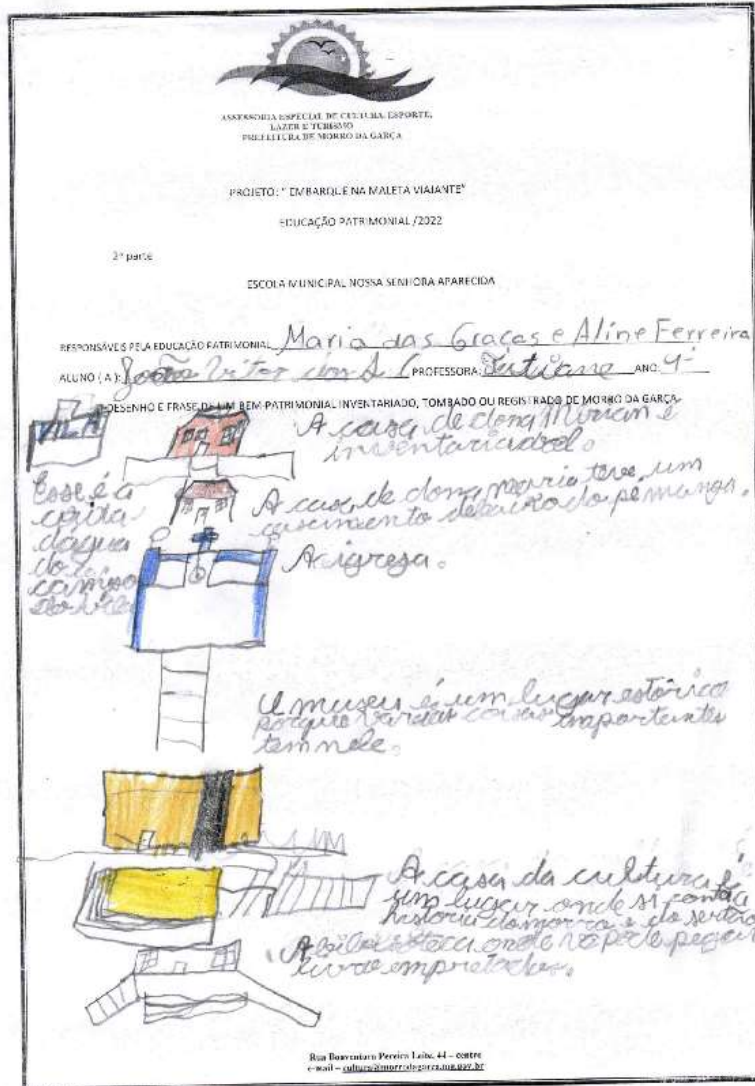 ASSESSORIA ESPECIAL DE CULTURA, ESPORTE,
LAZER E TURISMO
PREFEITURA DE MORRO DA GARÇA
PROJETO: " EMBARQUE NA MALETA VIAJANTE"
EDUCAÇÃO PATRIMONIAL /2022
2ª parte
ESCOLA MUNICIPAL NOSSA SENHORA APARECIDA
RESPONSÁVEIS PELA EDUCAÇÃO PATRIMONIAL Maria das Graças e Aline Ferreira
ALUNO ( A ): João Vitor PROFESSORA: Tatiane ANO: 4º
DESENHO E FRASE DE UM BEM PATRIMONIAL INVENTARIADO, TOMBADO OU REGISTRADO DE MORRO DA GARÇA
A casa de dona Mirian é
inventariadoel.
Esse é a
caixa
daqua
do
campo
A casa de dona maria teve um
debaixo do pé manga.
A igresa.
O museu é um lugar estórico
porque varias coisas importantes
tem nele.
A casa da cultura é
um lugar onde si conta a
historia do morro e do sertão
A biblioteca onde vo pode pegar
livro
Rua Boaventura Pereira Leite, 44 – centro
e-mail – cultura@morrodagarca.mg.gov.br